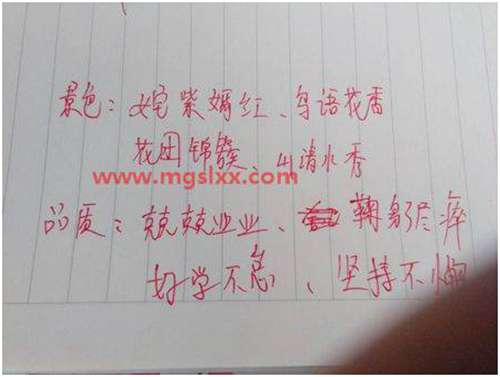 景色：姹紫嫣红、鸟语花香
花团锦簇、山清水秀
www.mgslxx.com
品质：兢兢业业、鞠躬尽瘁
好学不怠、坚持不懈